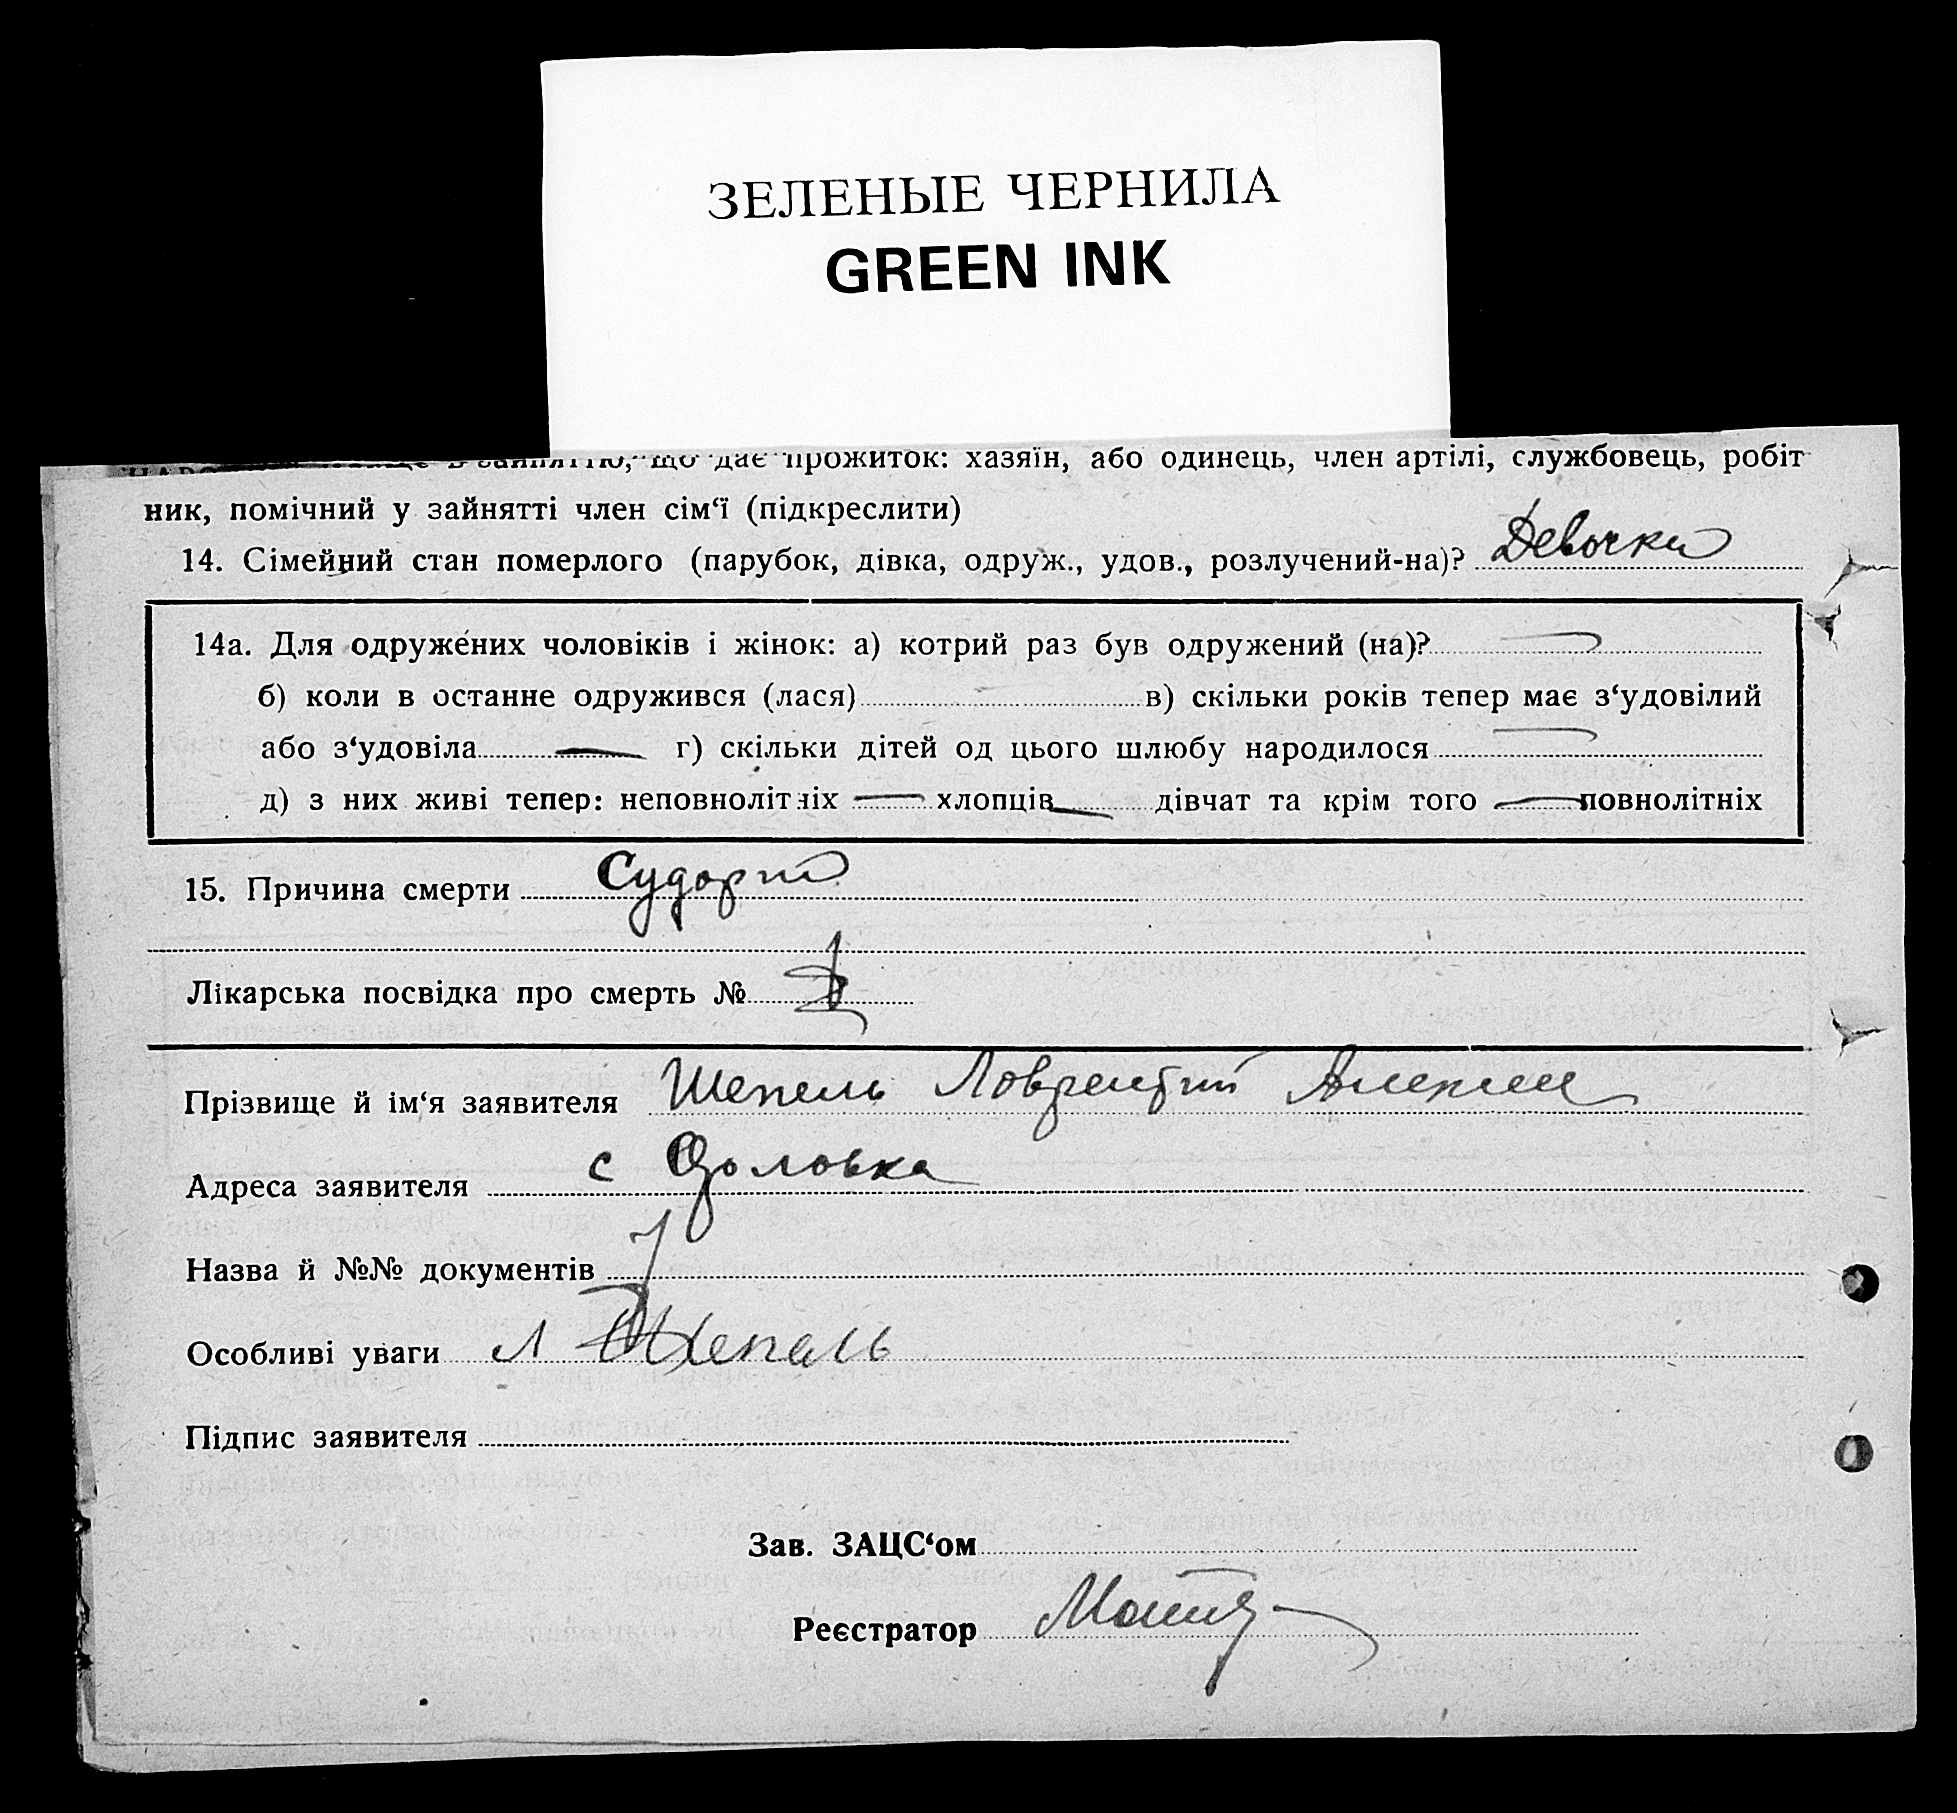 ЗЕЛЕНЫЕ ЧЕРНИЛА
GREEN INK
що дає прожиток: хазяїн, або одинець, член артілі, службовець, робіт
ник, помічний у зайнятті член сім‘ї (підкреслити)
14. Сімейний стан померлого (парубок, дівка, одруж., удов., розлучений-на)? Девочка
14а. Для одружених чоловіків і жінок: а) котрий раз був одружений (на)?
б) коли в останне одружився (лася) в) скільки років тепер має з‘удовілий
або з‘удовіла — г) скільки дітей од цього шлюбу народилося
д) з них живі тепер: неповнолітніх — хлопців — дівчат та крім того — повнолітніх
15. Причина смерти
Лікарська посвідка про смерть №
Прізвище й ім‘я заявителя Шепель
Адреса заявителя с
Назва й №№ документів
Особливі уваги Л Шепель
Підпис заявителя
Зав. ЗАЦС‘ом
Реєстратор